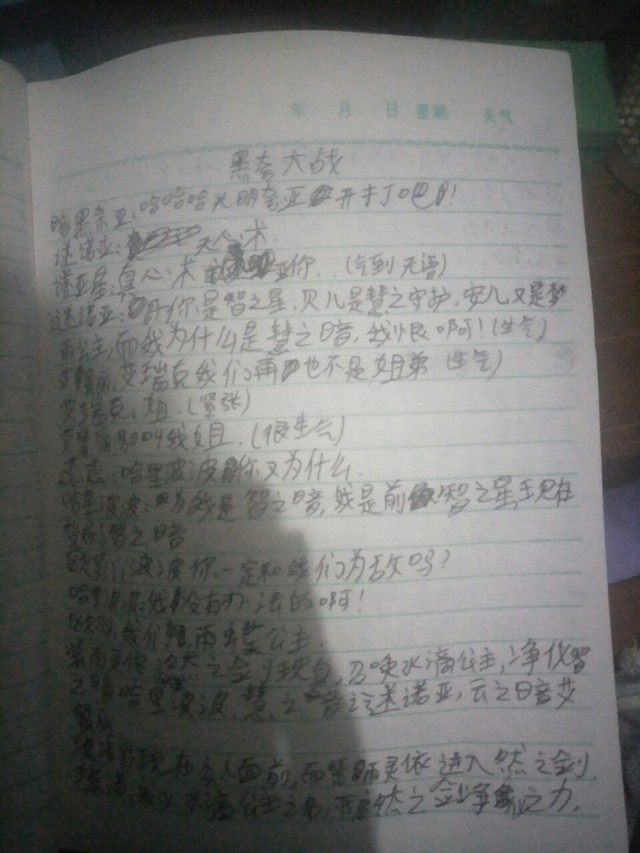 年 月 日 星期 天气
黑奈大战
暗黑奈亚:哈哈哈光明奈亚开打吧!
迷诺亚: 天心术
诺亚星:真心术 亚你.(气到无语)
迷诺亚: 你是智之星,贝儿是慧之守护,安儿又是梦
而公主,而我为什么是慧之暗,我恨啊!(生气)
艾瑞克我们再也不是姐弟.(生气)
艾瑞克:姐.(紧张)
别叫我姐.(很生气)
哈里波波你又为什么.
哈里波波:因为我是智之暗,我是前智之星王现在
变成智之暗
波波你一定和我们为敌吗?
哈里 我没有办法的啊!
我们 雨 公主
然之剑现身,召唤水滴公主,净化智
之暗哈里波波、慧之暗迷诺亚,云之暗艾
现在众人面前,而紫 灵依进入然之剑
水滴公主之 ,然之剑净 之力.